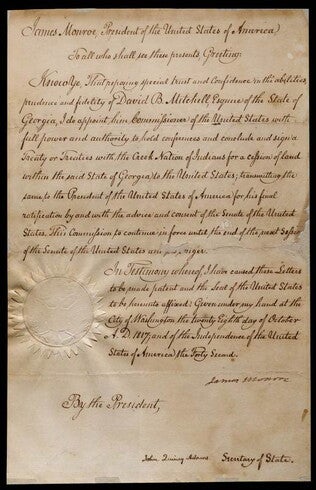 James Monroe, President of the United States of America,
To all who shall see these presents, Greeting:
Know Ye, That reposing special trust and Confidence in the abilities,
prudence and fidelity of David B. Mitchell, Esquire of the State of
Georgia, I do appoint him Commissioner of the United States with
full power and authority to hold conferences and conclude and sign a
Treaty or Treaties with the Creek Nation of Indians for a cession of land
within the said State of Georgia to the United States; transmitting the
same to the President of the United States of America for his final
ratification by and with the advice and consent of the Senate of the United
States. This Commission to continue in force until the end of the next Session
of the Senate of the United States and no longer.
In Testimony whereof I have caused these Letters
to be made patent and the Seal of the United States
to be hereunto affixed. Given under my hand at the
City of Washington the twenty eighth day of October
A. D. 1817; and of the Independence of the United
States of America the Forty Second.
James Monroe
By the President,
John Quincy Adams Secretary of State.